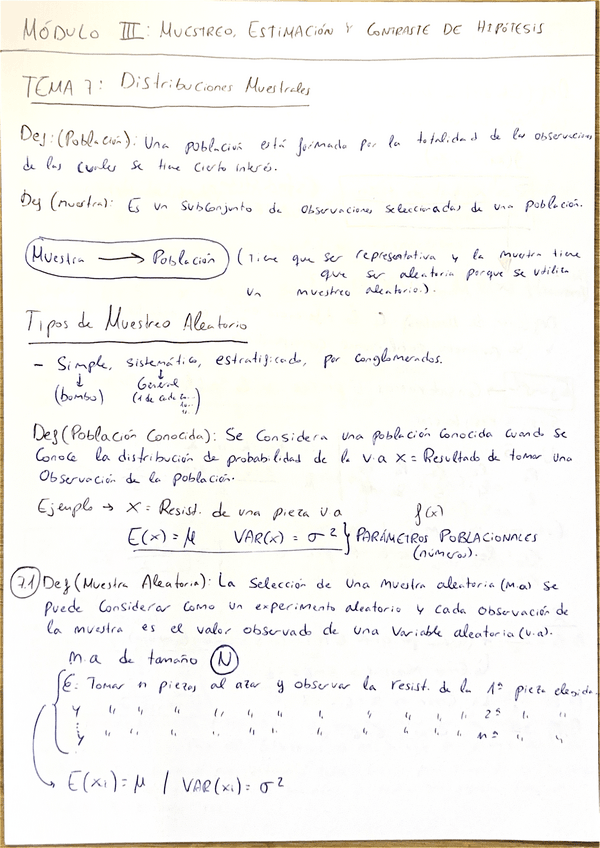 MÓDULO III: MUESTREO, ESTIMACIÓN Y CONTRASTE DE HIPÓTESIS
TEMA 7: Distribuciones Muestrales
Def: (Población): Una población está formado por la totalidad de las observaciones
de las cuales se tiene cierto interés.
Def (muestra): Es un subconjunto de observaciones seleccionadas de una población.
Muestra → Población (Tiene que ser representativa y la muestra tiene
que ser aleatoria porque se utiliza
un muestreo aleatorio.).
Tipos de Muestreo Aleatorio
- Simple, sistemático, estratificado, por conglomerados.
↓ ↓
(bombo) General
(1 de cada
Def (Población Conocida): Se considera una población conocida cuando se
conoce la distribución de probabilidad de la v.a X = Resultado de tomar una
observación de la población.
Ejemplo → X = Resist. de una pieza v a f(x)
E(x) = μ VAR(x) = σ² } PARÁMETROS POBLACIONALES
(números).
7.1 Def (Muestra Aleatoria): La selección de una muestra aleatoria (m.a) se
puede considerar como un experimento aleatorio y cada observación de
la muestra es el valor observado de una variable aleatoria (v.a).
m.a de tamaño N
E: Tomar n piezas al azar y observar la resist. de la 1ª pieza elegida.
y " " " " " " " " " " " 2ª " "
y " " " " " " " " " " " nª " "
E(xi) = μ / VAR(xi) = σ²